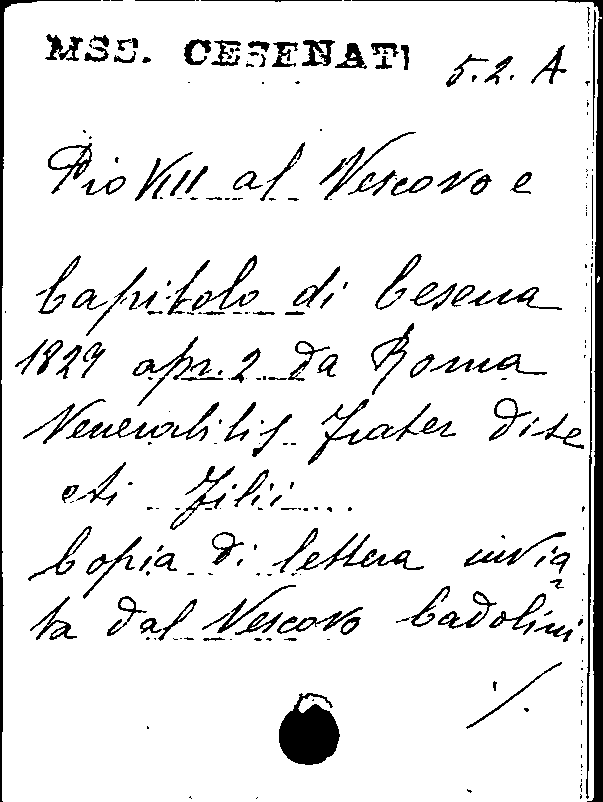 MSS. CESENATI 5.2.A
Pio VIII al Vescovo e
Capitolo di Cesena
1829 apr. 2 da Roma
Venerabilis frater dile
cti filii...
Copia di lettera invia
ta dal Vescovo Cadolini
./.